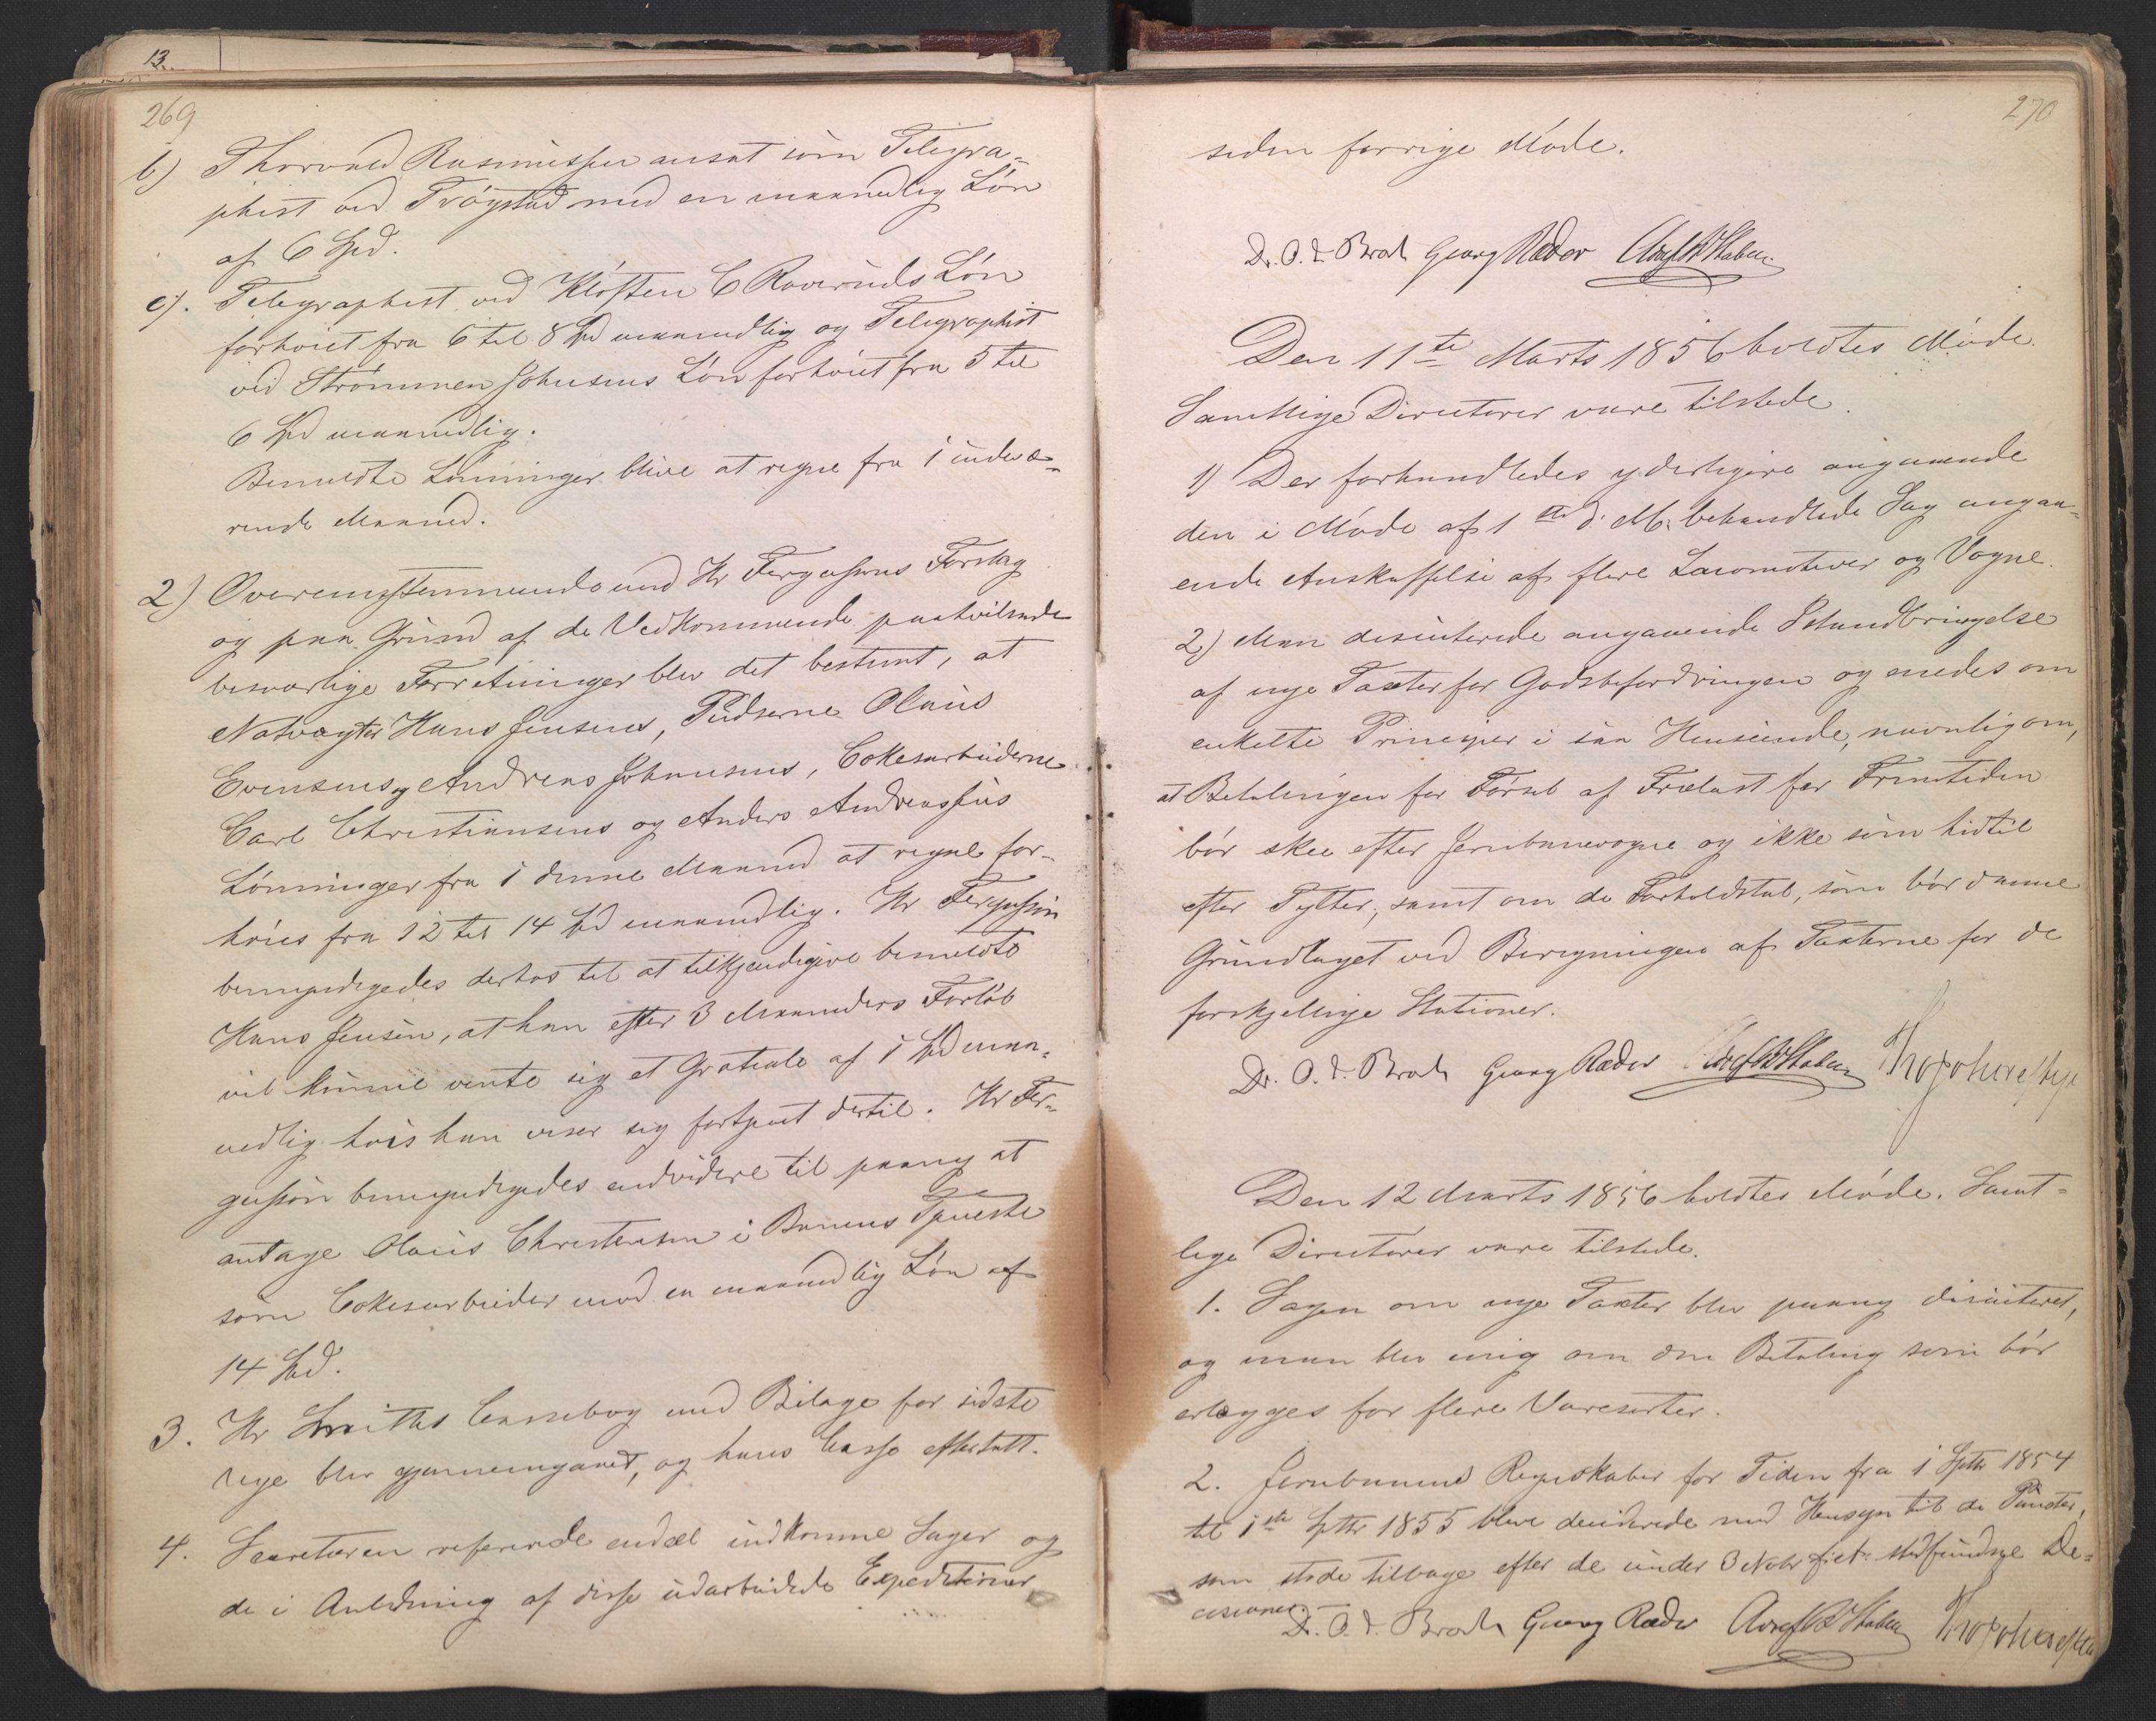 13.
269
b) Thorvald Rasmussen ansat som Telegra-
phist ved Trøgstad med en maanedlig Løn
af 6 Spd.
c). Telegraphist ved Kløften C Ruveruds Løn
forhøiet fra 6 til 8 Spd maanedlig og Telegraphist
ved Strømmen Johnsens Løn forhøiet fra 5 til
6 Spd maanedlig.
Bemeldte Lønninger blive at regne fra 1 indevæ-
rende Maaned.
2) Overensstemmende med Hr Fergussons Forslag
og paa Grund af de Vedkommende paahvilende
besværlige Forretninger blev det bestemt, at
Natvægter Hans Jensens, Pudserne Olaus
Evensens og Andreas Johnsens, Cokesarbeiderne
Carl Christiansens og Anders Andreassens
Lønninger fra 1 denne Maaned at regne for-
høies fra 12 til 14 Spd maanedlig. Hr Fergusson
bemyndigedes derhos til at tilkjendegive bemeldte
Hans Jensen, at han efter 3 Maaneders Forløb
vil kunne vente sig et Gratiale af 1 Spd maa-
nedlig hvis han viser sig fortjent dertil. Hr Fer-
gusson bemyndigedes endvidere til paany at
antage Olaus Christensen i Banens Tjeneste
som Cokesarbeider med en maanedlig Løn af
14 Spd.
3. Hr Smiths Cassebog med Bilage for sidste
Uge blev gjennemgaaet, og hans Casse eftertalt.
4. Secretæren refererede endel indkomne Sager og
de i Anledning af disse udarbeidede Expeditioner
270
siden forrige Møde.
Dr. O. J. Broch Georg Ræder
Den 11te Marts 1856 holdtes Møde.
Samtlige Directører vare tilstede.
1) Der forhandledes yderligere angaaende
den i Møde af 1ste d. M. behandlede Sag angaa-
ende Anskaffelse af flere Locomotiver og Vogne.
2) Man discuterede angaaende Istandbringelse
af nye Taxter for Godsbefordringen og enedes om
enkelte Principer i saa Henseende, navnlig om,
at Betalingen for Førsel af Trælast for Fremtiden
bør skee efter Jernbanevogne og ikke som hidtil
efter Tylfter, samt om de Forholdstal, som bør danne
Grundlaget ved Beregningen af Taxterne for de
forskjellige Stationer.
Dr. O. J. Broch Georg Ræder
Den 12 Marts 1856 holdtes Møde. Samt-
lige Directører vare tilstede.
1. Sagen om nye Taxter blev paany discuteret,
og man blev enig om den Betaling som bør
erlægges for flere Varesorter.
2. Jernbanens Regnskaber for Tiden fra 1 Septbr 1854
til 1ste Septbr 1855 bleve deciderede med Hensyn til de Puncter,
som stode tilbage efter de under 3 Novbr f. A. stedfundne De-
cisioner.
Dr. O. J. Broch Georg Ræder